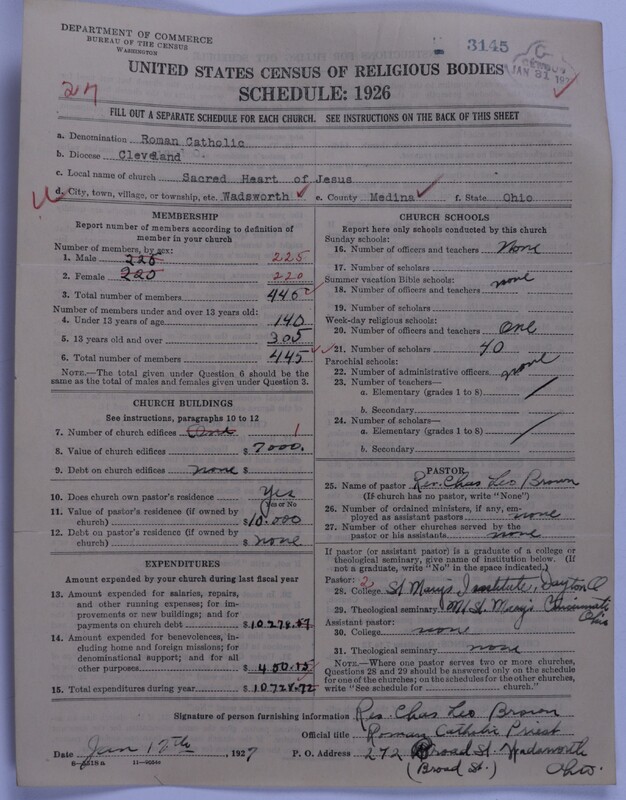 DEPARTMENT OF COMMERCE
BUREAU OF THE CENSUS
WASHINGTON
3145
CENSUS
JAN 31 192
UNITED STATES CENSUS OF RELIGIOUS BODIES
27
SCHEDULE: 1926
FILL OUT A SEPARATE SCHEDULE FOR EACH CHURCH. SEE INSTRUCTIONS ON THE BACK OF THIS SHEET
a. Denomination Roman Catholic
b. Diocese Cleveland
c. Local name of church Sacred Heart of Jesus
d. City, town, village, or township, etc. Wadsworth e. County Medina f. State Ohio
MEMBERSHIP
Report number of members according to definition of
member in your church
Number of members, by sex:
1. Male 225 225
2. Female 220 220
3. Total number of members 445
Number of members under and over 13 years old:
4. Under 13 years of age 140
5. 13 years old and over 305
6. Total number of members 445
NOTE.—The total given under Question 6 should be
the same as the total of males and females given under Question 3.
CHURCH BUILDINGS
See instructions, paragraphs 10 to 12
7. Number of church edifices One 1
8. Value of church edifices $ 7000.
9. Debt on church edifices none $
10. Does church own pastor's residence Yes
Yes or No
11. Value of pastor's residence (if owned by
church) $10.000
12. Debt on pastor's residence (if owned by
church) $ none
EXPENDITURES
Amount expended by your church during last fiscal year
13. Amount expended for salaries, repairs,
and other running expenses; for im-
provements or new buildings; and for
payments on church debt $10278.57
14. Amount expended for benevolences, in-
cluding home and foreign missions; for
denominational support; and for all
other purposes $ 450.15
15. Total expenditures during year $10728.72
CHURCH SCHOOLS
Report here only schools conducted by this church
Sunday schools:
16. Number of officers and teachers None
17. Number of scholars
Summer vacation Bible schools:
18. Number of officers and teachers none
19. Number of scholars
Week-day religious schools:
20. Number of officers and teachers One
21. Number of scholars 40
Parochial schools:
22. Number of administrative officers none
23. Number of teachers—
a. Elementary (grades 1 to 8)
b. Secondary
24. Number of scholars—
a. Elementary (grades 1 to 8)
b. Secondary
PASTOR
25. Name of pastor Rev. Chas Leo Brown
(If church has no pastor, write "None")
26. Number of ordained ministers, if any, em-
ployed as assistant pastors none
27. Number of other churches served by the
pastor or his assistants none
If pastor (or assistant pastor) is a graduate of a college or
theological seminary, give name of institution below. (If
not a graduate, write "No" in the space indicated.)
Pastor: 2
28. College St Mary's Institute, Dayton O
29. Theological seminary Mt St Mary's Cincinnati
Ohio
Assistant pastor:
30. College none
31. Theological seminary none
NOTE.—Where one pastor serves two or more churches,
Questions 28 and 29 should be answered only on the schedule
for one of the churches; on the schedules for the other churches,
write "See schedule for church."
Signature of person furnishing information Rev. Chas Leo Brown
Official title Roman Catholic Priest
Date Jan 12th, 1927 P. O. Address 272 Broad St. Wadsworth
(Broad St.) Ohio.
8-5218a 11-9034